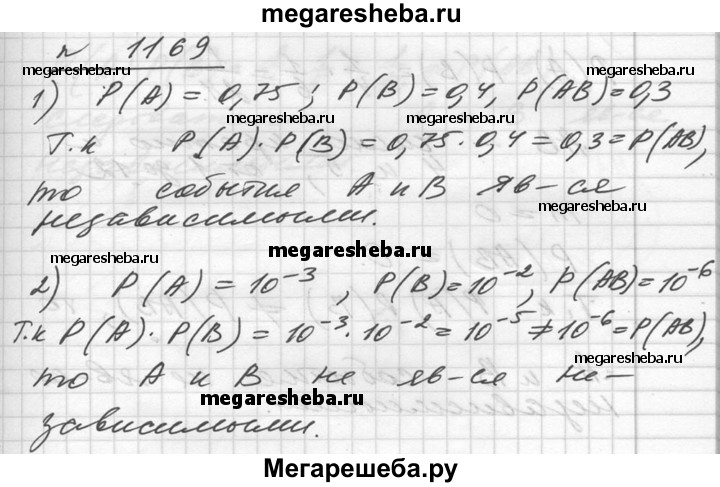 megaresheba.ru
№ 1169
megaresheba.ru megaresheba.ru megaresheba.ru
1) P(A) = 0,75; P(B) = 0,4, P(AB) = 0,3
Т.к P(A)·P(B) = 0,75·0,4 = 0,3 = P(AB),
то события А и В яв-ся
megaresheba.ru
независимыми.
megaresheba.ru megaresheba.ru
2) P(A) = 10⁻³, P(B) = 10⁻², P(AB) = 10⁻⁶
Т.к P(A)·P(B) = 10⁻³·10⁻² = 10⁻⁵ ≠ 10⁻⁶ = P(AB),
megaresheba.ru
то А и В не яв-ся не-
megaresheba.ru
зависимыми.
Мегарешеба.ру